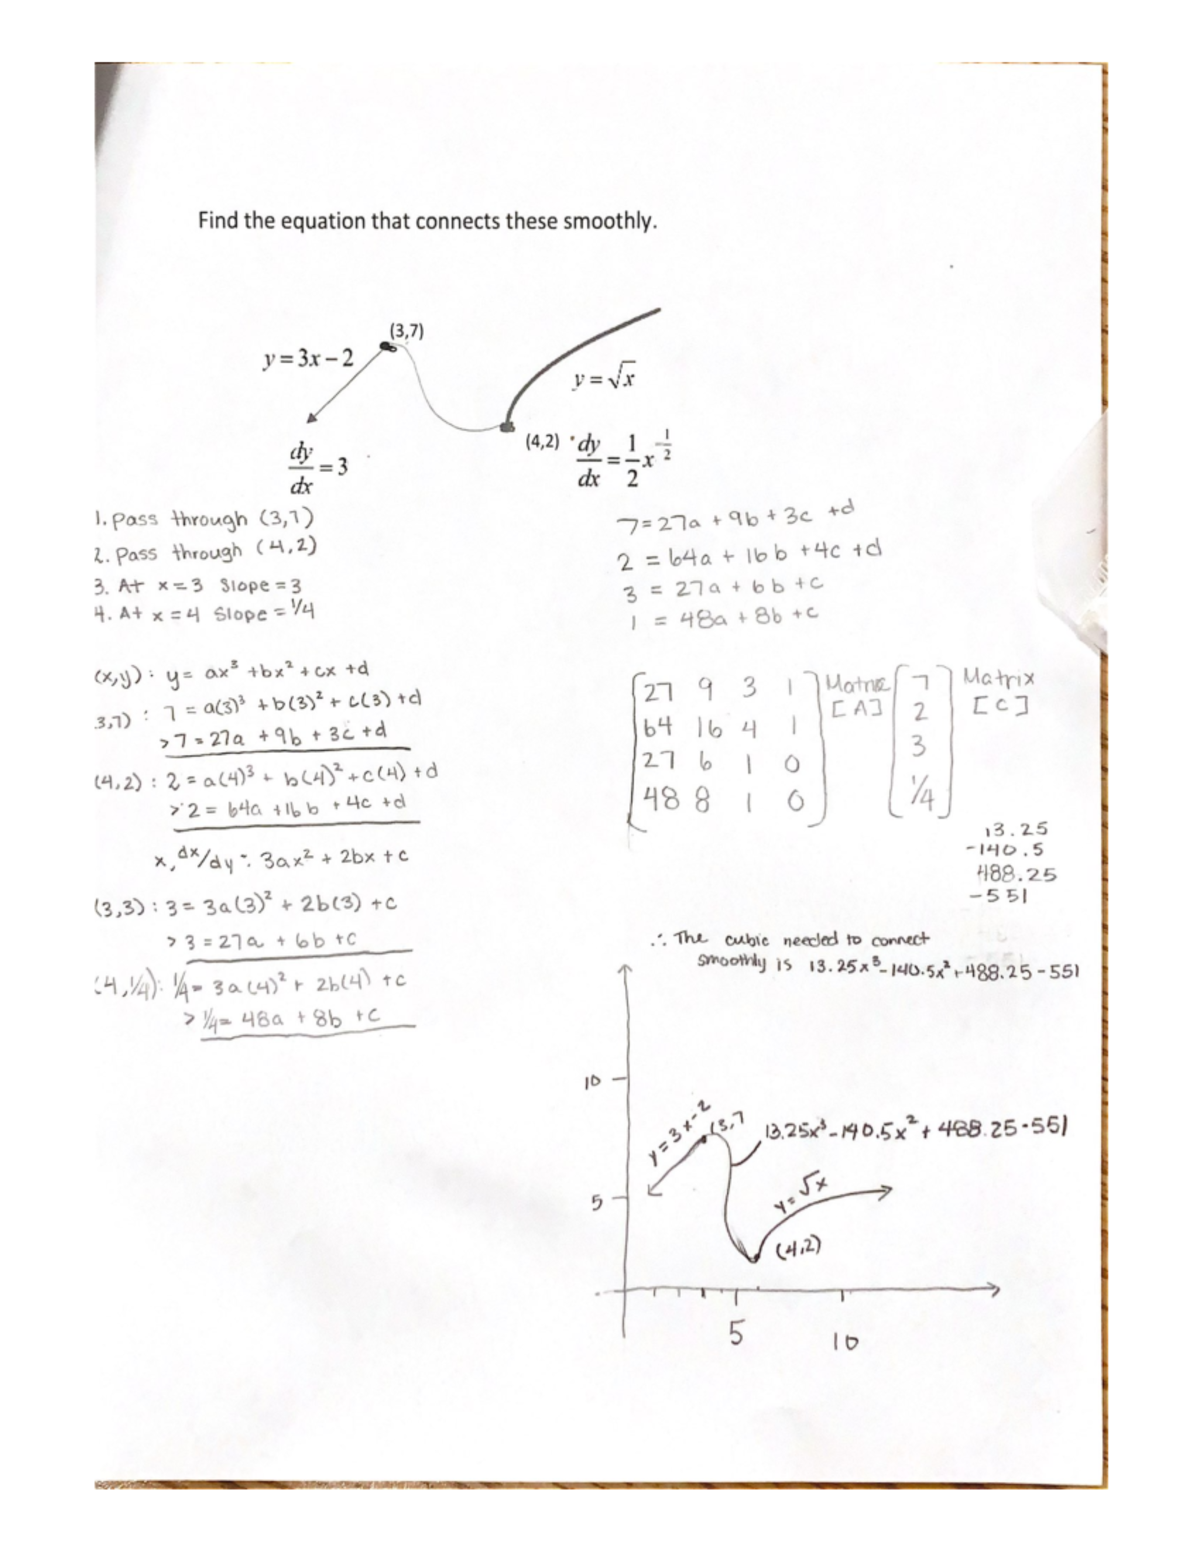 Find the equation that connects these smoothly.
(3,7)
y = 3x − 2
y = √x
dy/dx = 3
(4,2) dy/dx = 1/2 x^-1/2
1. Pass through (3,7)
2. Pass through (4,2)
3. At x = 3 Slope = 3
4. At x = 4 Slope = 1/4
(x,y) : y = ax³ + bx² + cx + d
3,7) : 7 = a(3)³ + b(3)² + c(3) + d
> 7 = 27a + 9b + 3c + d
(4,2) : 2 = a(4)³ + b(4)² + c(4) + d
> 2 = 64a + 16b + 4c + d
x, dx/dy : 3ax² + 2bx + c
(3,3) : 3 = 3a(3)² + 2b(3) + c
> 3 = 27a + 6b + c
(4,1/4) : 1/4 = 3a(4)² + 2b(4) + c
> 1/4 = 48a + 8b + c
7 = 27a + 9b + 3c + d
2 = 64a + 16b + 4c + d
3 = 27a + 6b + c
1 = 48a + 8b + c
27 9 3 1 Matrix 7 Matrix
64 16 4 1 [A] 2 [C]
27 6 1 0 3
48 8 1 0 1/4
13.25
-140.5
488.25
-551
∴ The cubic needed to connect
smoothly is 13.25x³-140.5x²+488.25-551
10
y = 3x-2
(3,7
13.25x³-140.5x²+488.25-551
5
y = √x
(4,2)
5
10